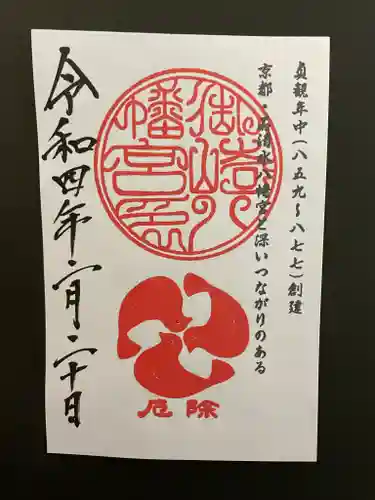 貞観年中(八五九〜八七七)創建
京都・石清水八幡宮と深いつながりのある
幡宮
厄除
令和四年二月二十日